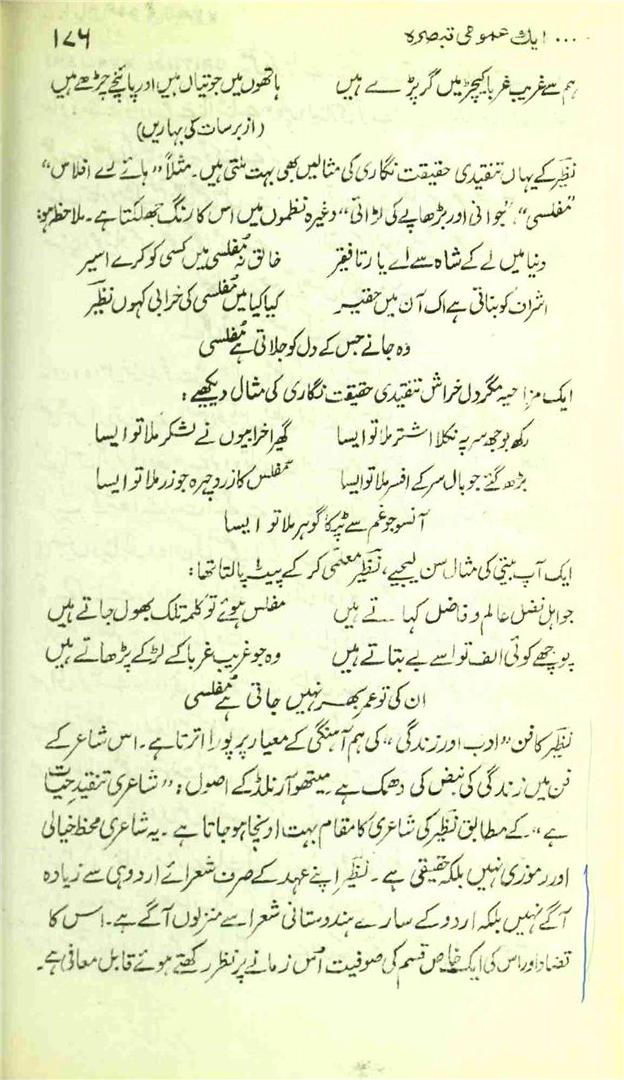 ... ایک عمومی تبصرہ ۱۷۶
ہم سے غریب غربا کیچڑ میں گر پڑے ہیں ہاتھوں میں جوتیاں ہیں اور پائنچے چڑھے ہیں
(از برسات کی بہاریں)
نظیر کے یہاں تنقیدی حقیقت نگاری کی مثالیں بھی بہت ملتی ہیں۔ مثلاً "ہائے رے افلاس"
"مفلسی"، "جوانی اور بڑھاپے کی لڑائی" وغیرہ نظموں میں اس کا رنگ جھلکتا ہے۔ ملاحظہ ہو:
دنیا میں لے کے شاہ سے اے یار تا فقیر خالق نہ مفلسی میں کسی کو کرے اسیر
اشراف کو بناتی ہے اک آن میں حقیر کیا کیا میں مفلسی کی خرابی کہوں نظیر
وہ جانے جس کے دل کو جلاتی ہے مفلسی
ایک مزاحیہ مگر دل خراش تنقیدی حقیقت نگاری کی مثال دیکھیے:
رکھ بوجھ سر پہ نکلا اشتر ملا تو ایسا گھیرا خرابیوں نے لشکر ملا تو ایسا
بڑھ گئے جو بال سر کے افسر ملا تو ایسا مفلس کا زرد چہرہ جو زر ملا تو ایسا
آنسو جو غم سے ٹپکا گوہر ملا تو ایسا
ایک آپ بیتی کی مثال سن لیجیے، نظیر معلمی کر کے پیٹ پالتا تھا:
جو اہل فضل عالم و فاضل کہاتے ہیں مفلس ہوئے تو کلمہ تلک بھول جاتے ہیں
پوچھے کوئی الف تو اسے بے بتاتے ہیں وہ جو غریب غربا کے لڑکے پڑھاتے ہیں
ان کی تو عمر بھر نہیں جاتی ہے مفلسی
نظیر کا فن "ادب اور زندگی" کی ہم آہنگی کے معیار پر پورا اترتا ہے۔ اس شاعر کے
فن میں زندگی کی نبض کی دھمک ہے۔ میتھو آرنلڈ کے اصول: "شاعری تنقید حیات
ہے" کے مطابق نظیر کی شاعری کا مقام بہت اونچا ہو جاتا ہے۔ یہ شاعری محظ خیالی
اور رموزی نہیں بلکہ حقیقی ہے۔ نظیر اپنے عہد کے صرف شعرائے اردو ہی سے زیادہ
آگے نہیں بلکہ اردو کے سارے ہندوستانی شعرا سے منزلوں آگے ہے۔ اس کا
تضاد اور اس کی ایک خاص قسم کی صوفیت اس زمانے پر نظر رکھتے ہوئے قابل معافی ہے۔